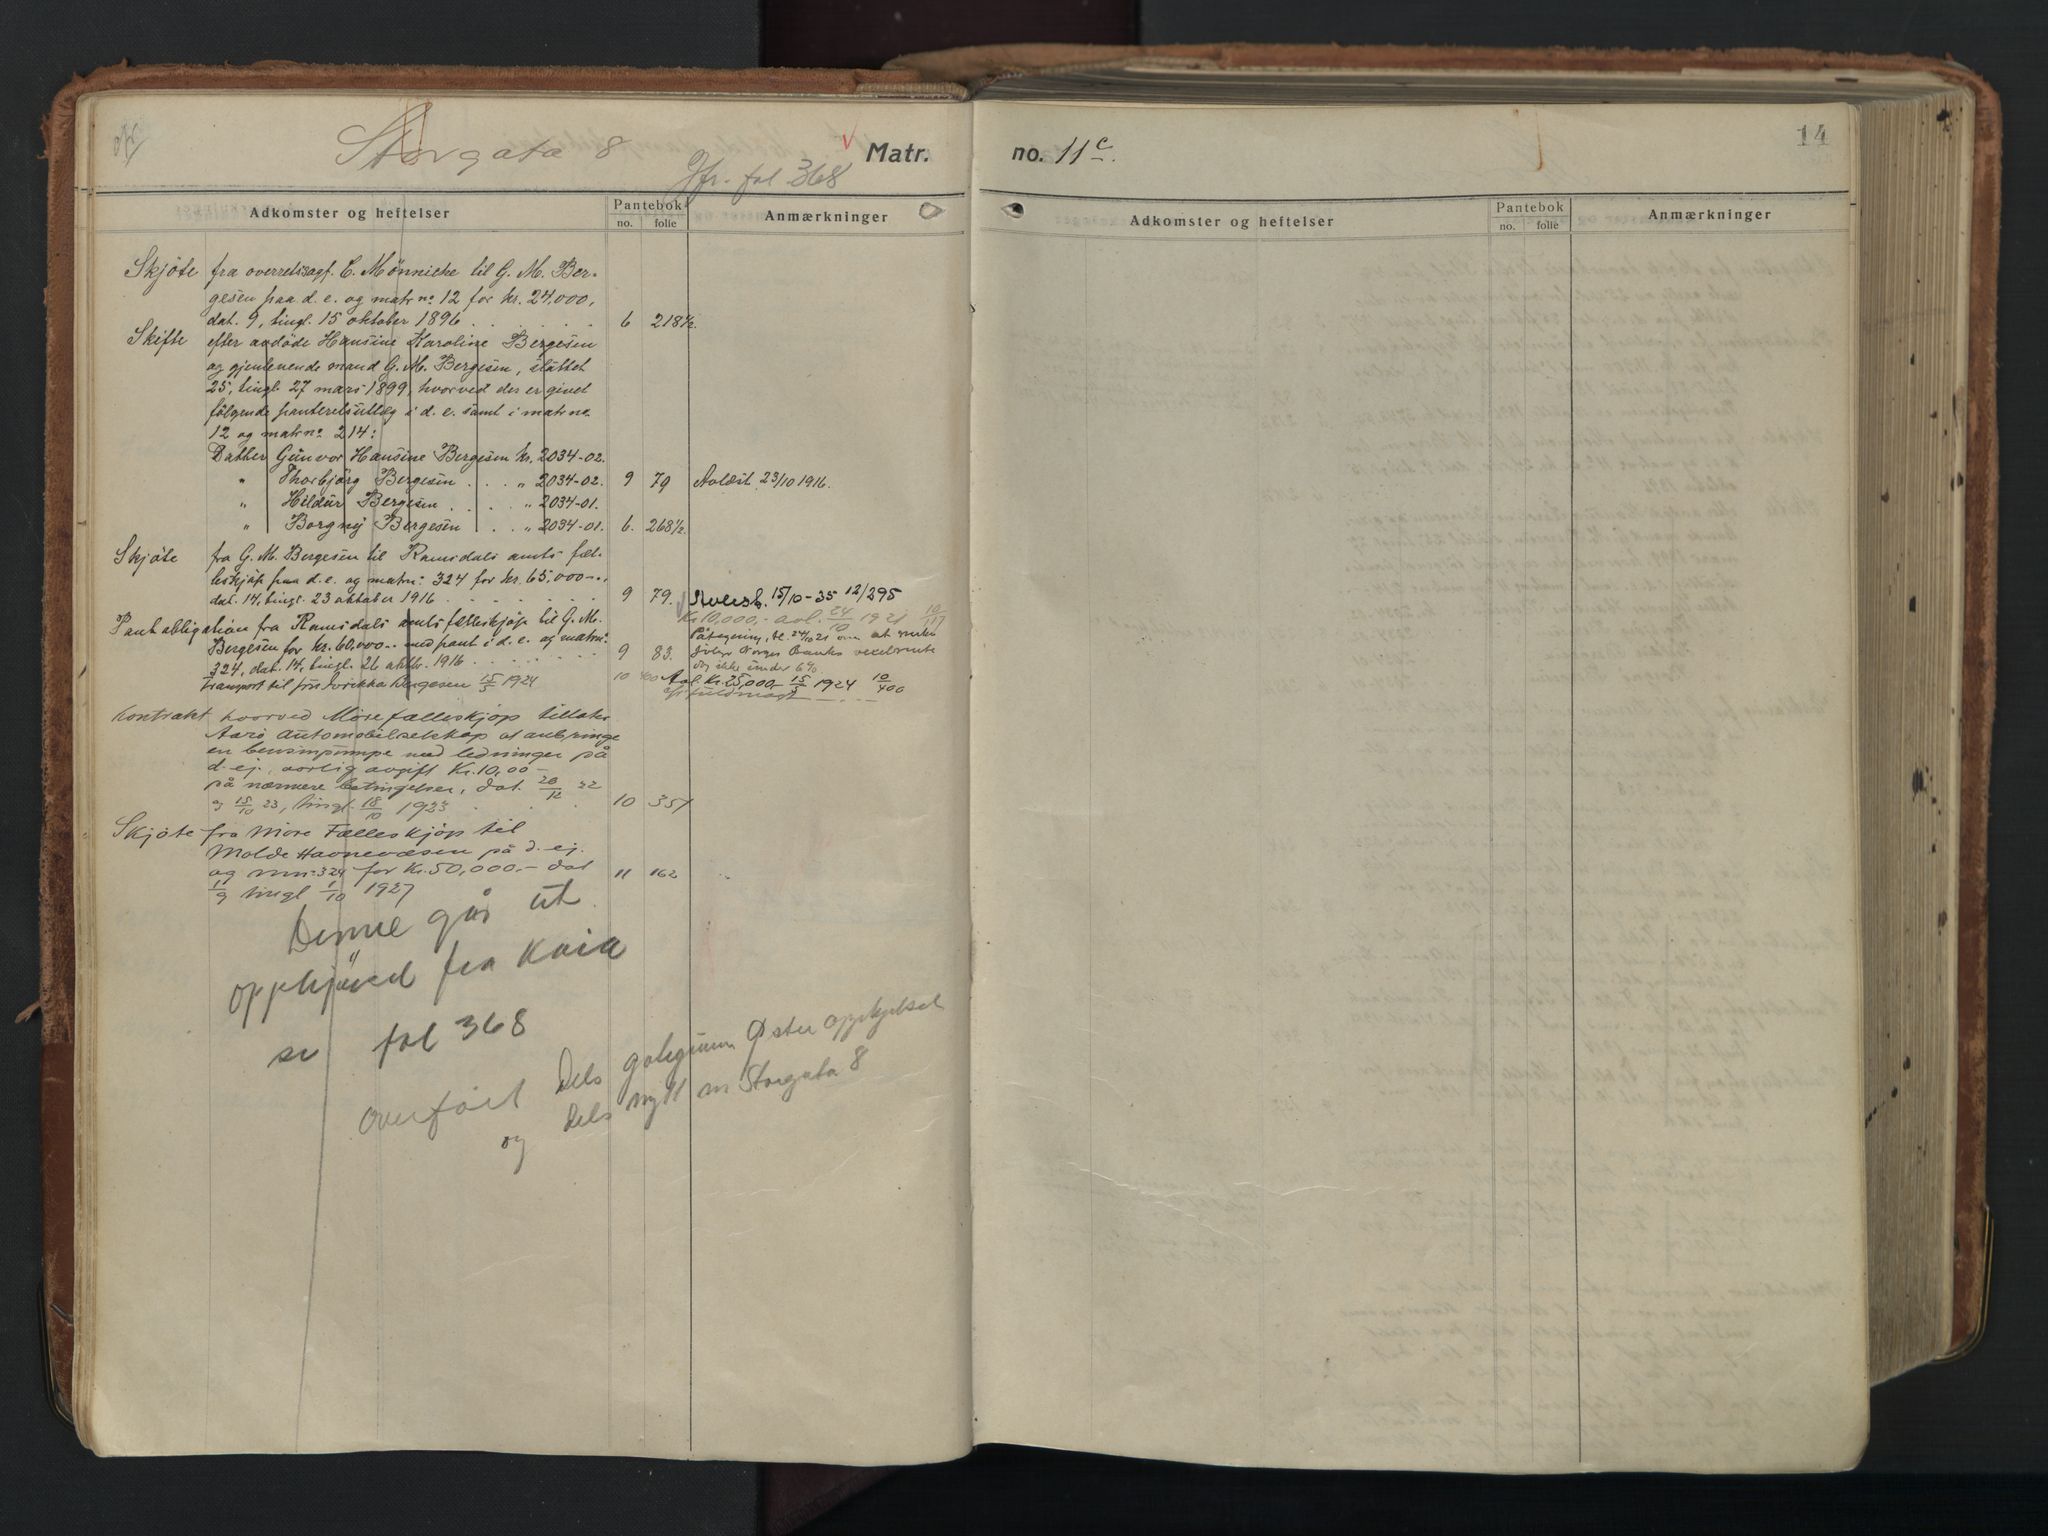 Storgata 8
Jfr. fol 368
Matr. no. 11c.
14
Adkomster og heftelser Pantebok no. folie Anmærkninger
Adkomster og heftelser Pantebok no. folie Anmærkninger
Skjöte fra overretssagf. C. Mönniche til G. M. Ber-
gesen paa d. e. og matr no 12 for kr. 24,000,
dat. 9, tingl. 15 oktober 1896 . . . . . . 6 218½.
Skifte efter avdöde Hansine Karoline Bergesen
og gjenlevende mand G. M. Bergesen, sluttet
25, tingl. 27 mars 1899, hvorved der er givet
fölgende panteretsutlæg i d. e. samt i matr no
12 og matr no 214:
Datter Gunvor Hansine Bergesen kr. 2034-02.
" Thorbjörg Bergesen . . . " 2034-02. 9 79 Avlæst 23/10 1916.
" Hildur Bergesen . . . . " 2034-01.
" Borgny Bergesen . . . " 2034-01. 6. 268½.
Skjöte fra G. M. Bergesen til Romsdals amts fæl-
leskjöp paa d. e. og matr no 324 for kr. 65,000-..
dat. 14, tingl. 23 oktober 1916 . . . . . . 9 79. Avlest. 15/10-35 12/295
Kr 10,000,- avl. 24/10 1921 10/117
Pantobligation fra Romsdals amts fælleskjöp til G. M.
Påtegning, tl. 24/10 21 om at renten
Bergesen for kr. 60,000-.. med pant i d. e. og matr no
324, dat. 14, tingl. 26 oktbr. 1916 . . . . . . 9 83. fölger Norges Banks vexelrente
og ikke under 6%
Transport til frü Fredrikka Bergesen 15/5 1924 10 400 Avl. Kr. 25,000,- 15/5 1924 10/400
Kontrakt hvorved Möre fælleskjöp tillater
Aarö Automobilselskap at anbringe
en bensinpumpe med ledninger på
d. ej., aarlig avgift Kr. 10,00-
på nærmere betingelser, dat. 20/12 22
og 15/10 23, tingl. 18/10 1923 . . . 10 351
Skjöte fra Möre Fælleskjöp til
Molde Havnevæsen på d. ej.
og mno 324 for Kr. 50,000.- dat
1/9 tingl 1/10 1927 11 162
Denne går ut
opphjöved fra Kaia
se fol 368
overført Dels Øster
og dels nytt nr Storgata 8